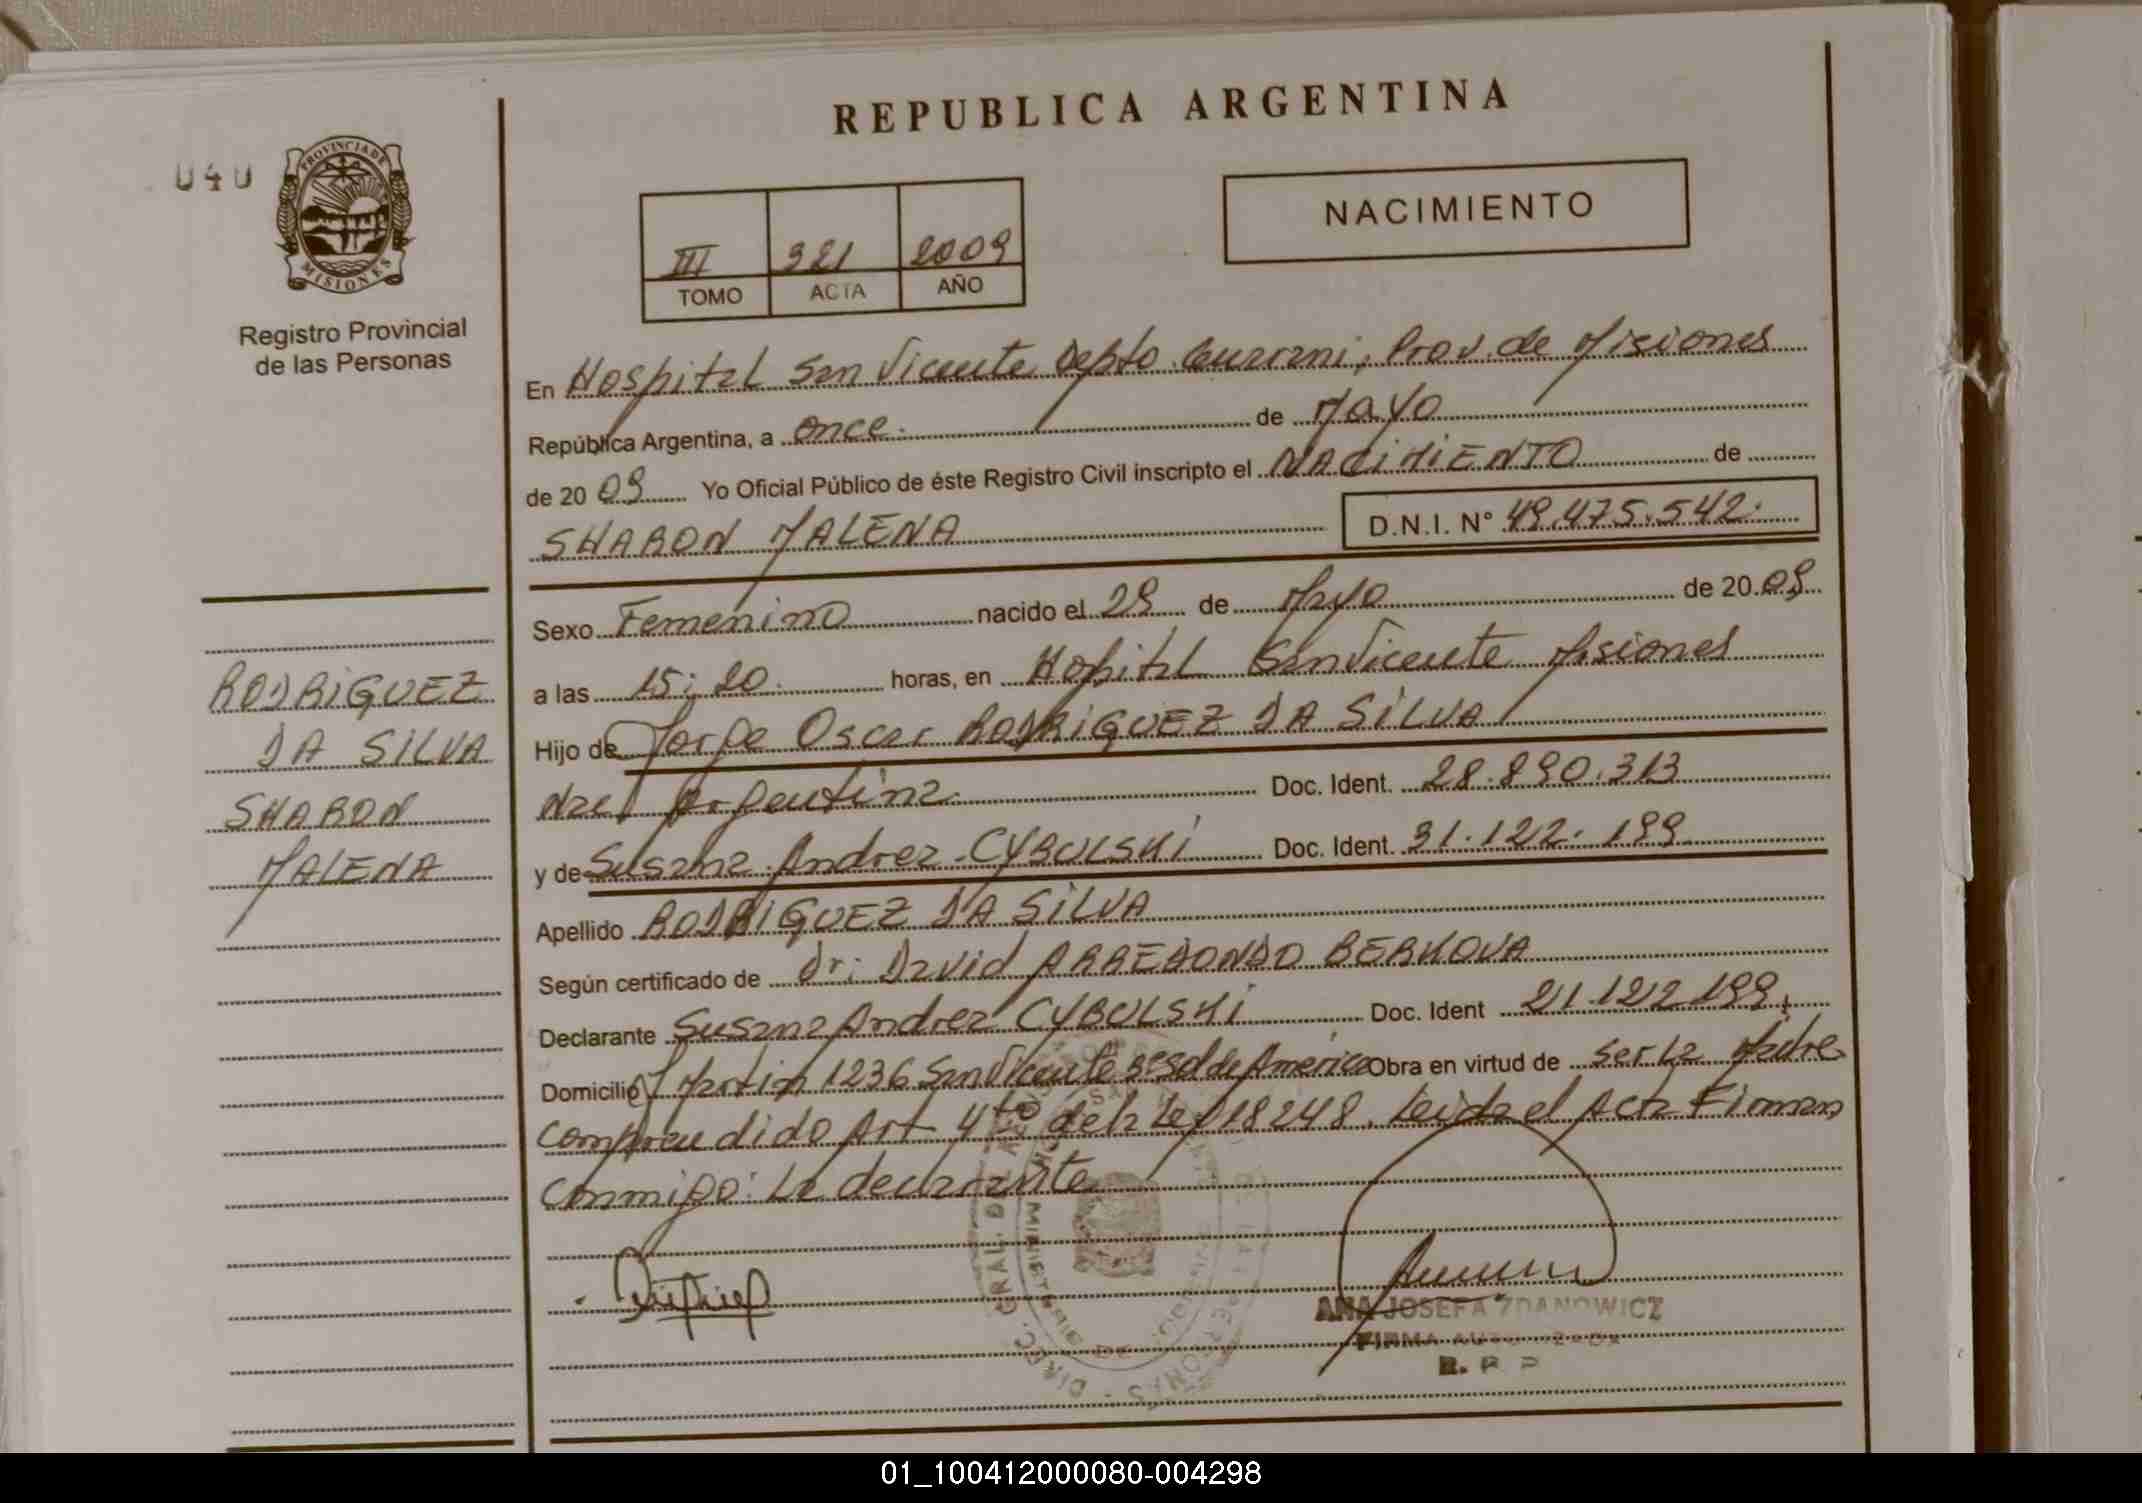 REPUBLICA ARGENTINA
040
PROVINCIA DE
MISIONES
Registro Provincial
de las Personas
NACIMIENTO
III 321 2009
TOMO ACTA AÑO
En Hospital San Vicente Depto. Guarani, Prov. de Misiones
República Argentina, a once. de Mayo
de 20 09 Yo Oficial Público de éste Registro Civil inscripto el NACIMIENTO de
SHARON MALENA D.N.I. N° 49.475.542.
Sexo Femenino nacido el 29 de Mayo de 20.09
a las 15:20. horas, en Hopital San Vicente Misiones
Hijo de Jorge Oscar RODRIGUEZ DA SILVA
Nac. Argentina. Doc. Ident. 28.890.313
y de Susana Andrea CYBULSKI Doc. Ident. 31.122.199
Apellido RODRIGUEZ DA SILVA
Según certificado de Dr: David ARREDONDO BERKOVA
Declarante Susana Andrea CYBULSKI Doc. Ident 21.122 199
Domicilio Martin 1236 San Vicente de America Obra en virtud de ser La Madre
Comprendido Art 4to de la Ley 18248. Leida el Acta Firman
Conmigo: La declarante
RODRIGUEZ
DA SILVA
SHARON
MALENA
ANA JOSEFA ZDANOWICZ
FIRMA AUTORIZADA
R. P. P
01_100412000080-004298